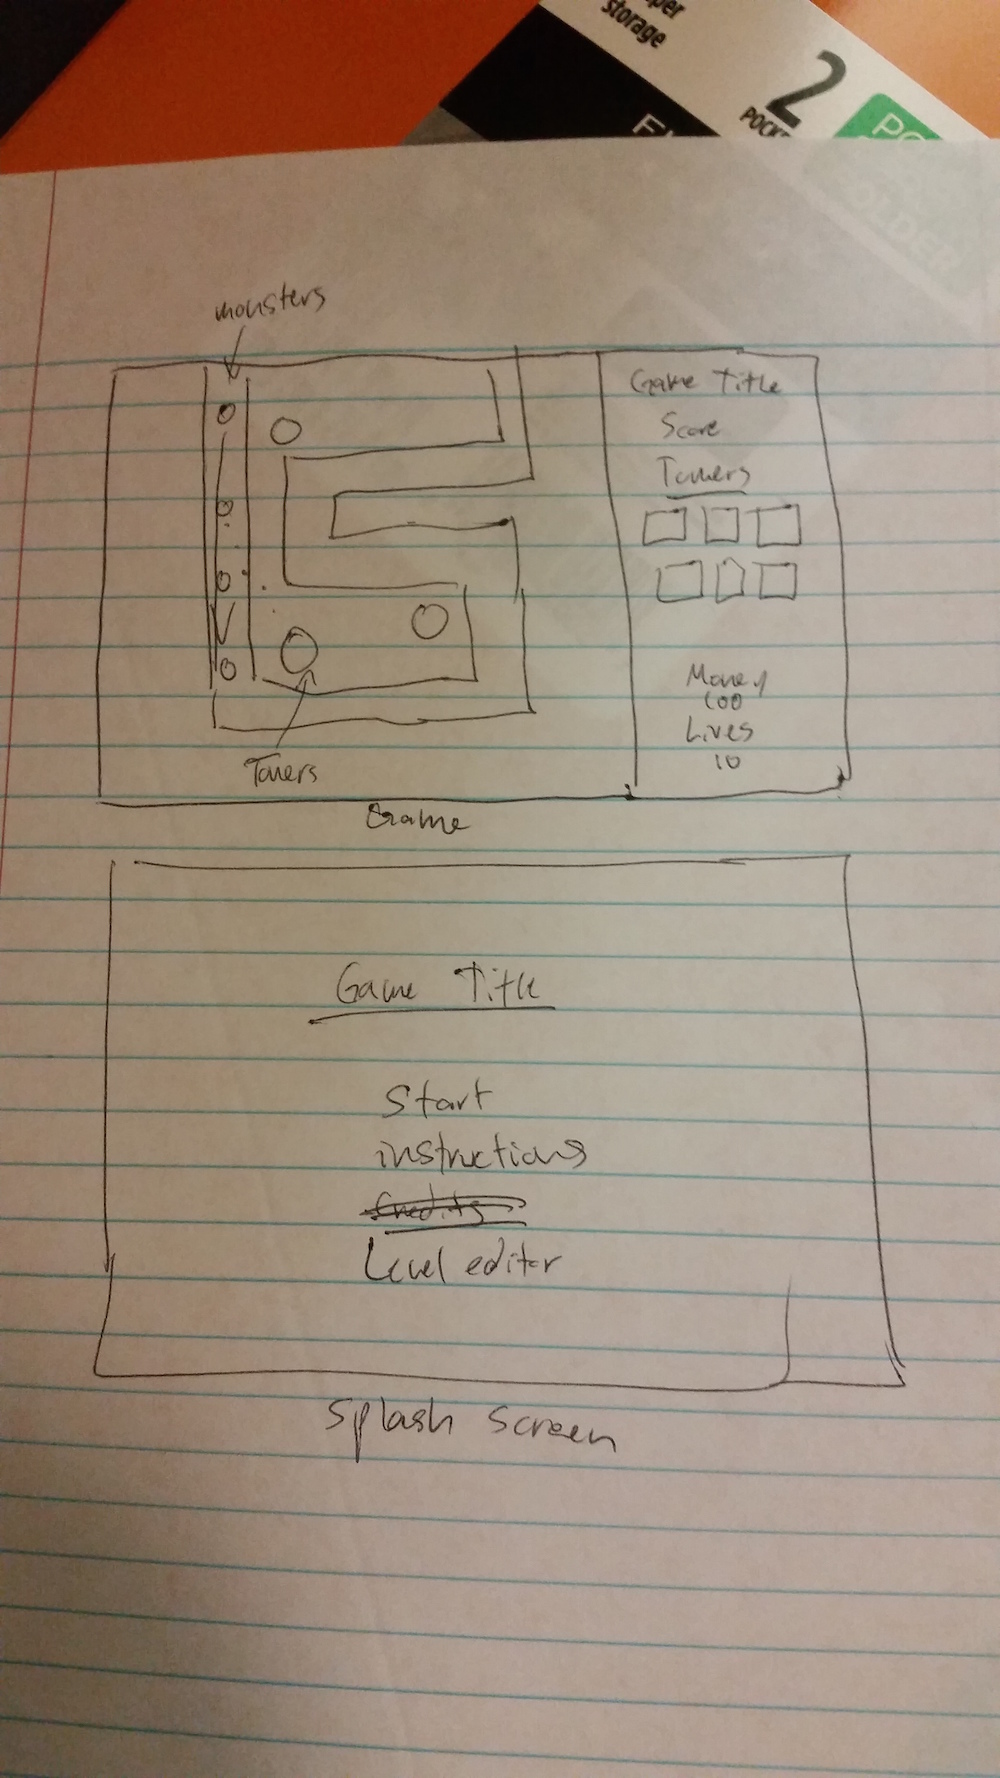 per
storage
2
POCK
PO
OLDER
monsters
Game Title
Score
Towers
Money
100
Lives
10
Towers
Game
Game Title
Start
instructions
Credits
Level editor
Splash screen